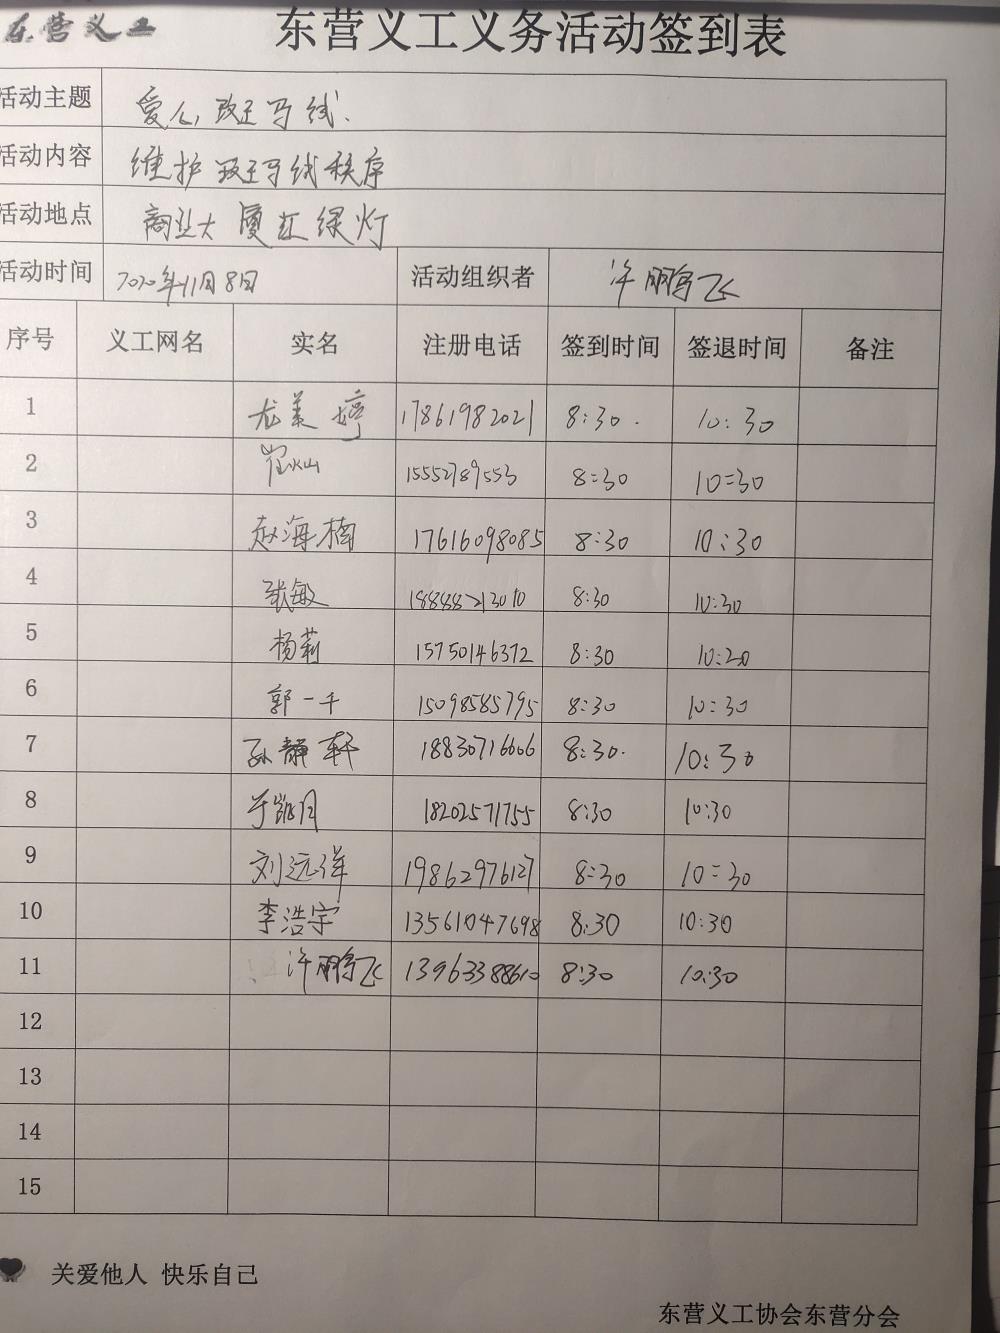 东营义工
东营义工义务活动签到表
活动主题 爱心斑马线.
活动内容 维护斑马线秩序
活动地点 商业大厦红绿灯
活动时间 2020年11月8日 活动组织者 许鹏飞
序号 义工网名 实名 注册电话 签到时间 签退时间 备注
1 尤美婷 17861982021 8:30. 10:30
2 15552789553 8:30 10:30
3 赵海楠 17616098085 8:30 10:30
4 张敏 18888213010 8:30 10:30
5 杨莉 15750146372 8:30 10:20
6 郭一千 15098585795 8:30 10:30
7 孙静轩 18830716606 8:30. 10:30
8 于凯月 18202571755 8:30 10:30
9 刘远洋 19862976127 8:30 10:30
10 李浩宇 13561047698 8:30 10:30
11 许鹏飞 13963388610 8:30 10:30
12
13
14
15
关爱他人 快乐自己
东营义工协会东营分会